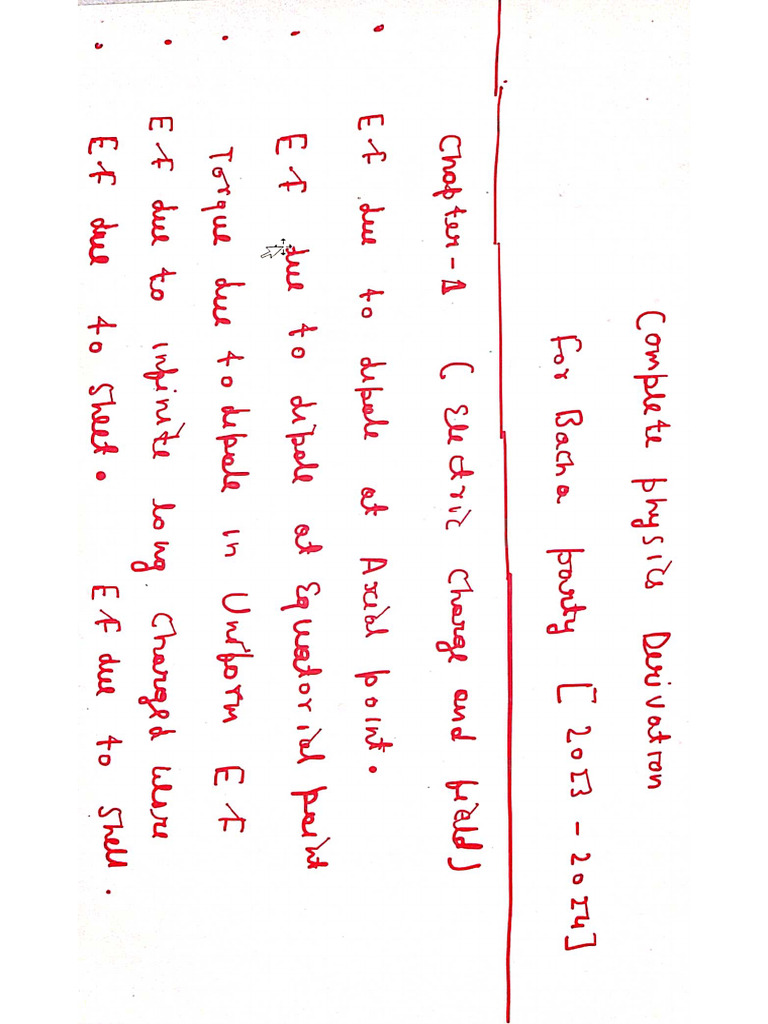 Complete physics Derivation
For Bacha party [2023 - 2024]
Chapter-1 (Electric Charge and field)
• Ef due to dipole at Axial point.
• Ef due to dipole at Equatorial point
• Torque due to dipole in Uniform Ef
• Ef due to infinite long Charged wire
• Ef due to Sheet. Ef due to Shell.